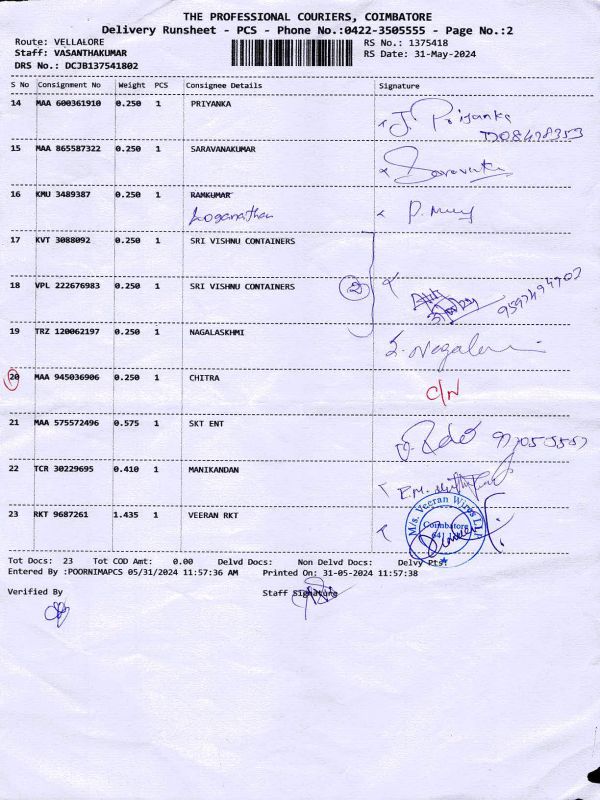 THE PROFESSIONAL COURIERS, COIMBATORE
Delivery Runsheet - PCS - Phone No.:0422-3505555 - Page No.:2
Route: VELLALORE RS No.: 1375418
Staff: VASANTHAKUMAR RS Date: 31-May-2024
DRS No.: DCJB137541802
S No Consignment No Weight PCS Consignee Details Signature
14 MAA 600361910 0.250 1 PRIYANKA J. Priyanka
15 MAA 865587322 0.250 1 SARAVANAKUMAR
16 KMU 3489387 0.250 1 RAMKUMAR
Loganathan
17 KVT 3088092 0.250 1 SRI VISHNU CONTAINERS
18 VPL 222676983 0.250 1 SRI VISHNU CONTAINERS 2
19 TRZ 120062197 0.250 1 NAGALASKHMI
20 MAA 945036906 0.250 1 CHITRA C/N
21 MAA 575572496 0.575 1 SKT ENT
22 TCR 30229695 0.410 1 MANIKANDAN
23 RKT 9687261 1.435 1 VEERAN RKT
M/s. Veeran Wires
Coimbatore
Tot Docs: 23 Tot COD Amt: 0.00 Delvd Docs: Non Delvd Docs: Delvy Pts:
Entered By :POORNIMAPCS 05/31/2024 11:57:36 AM Printed On: 31-05-2024 11:57:38
Verified By Staff Signature